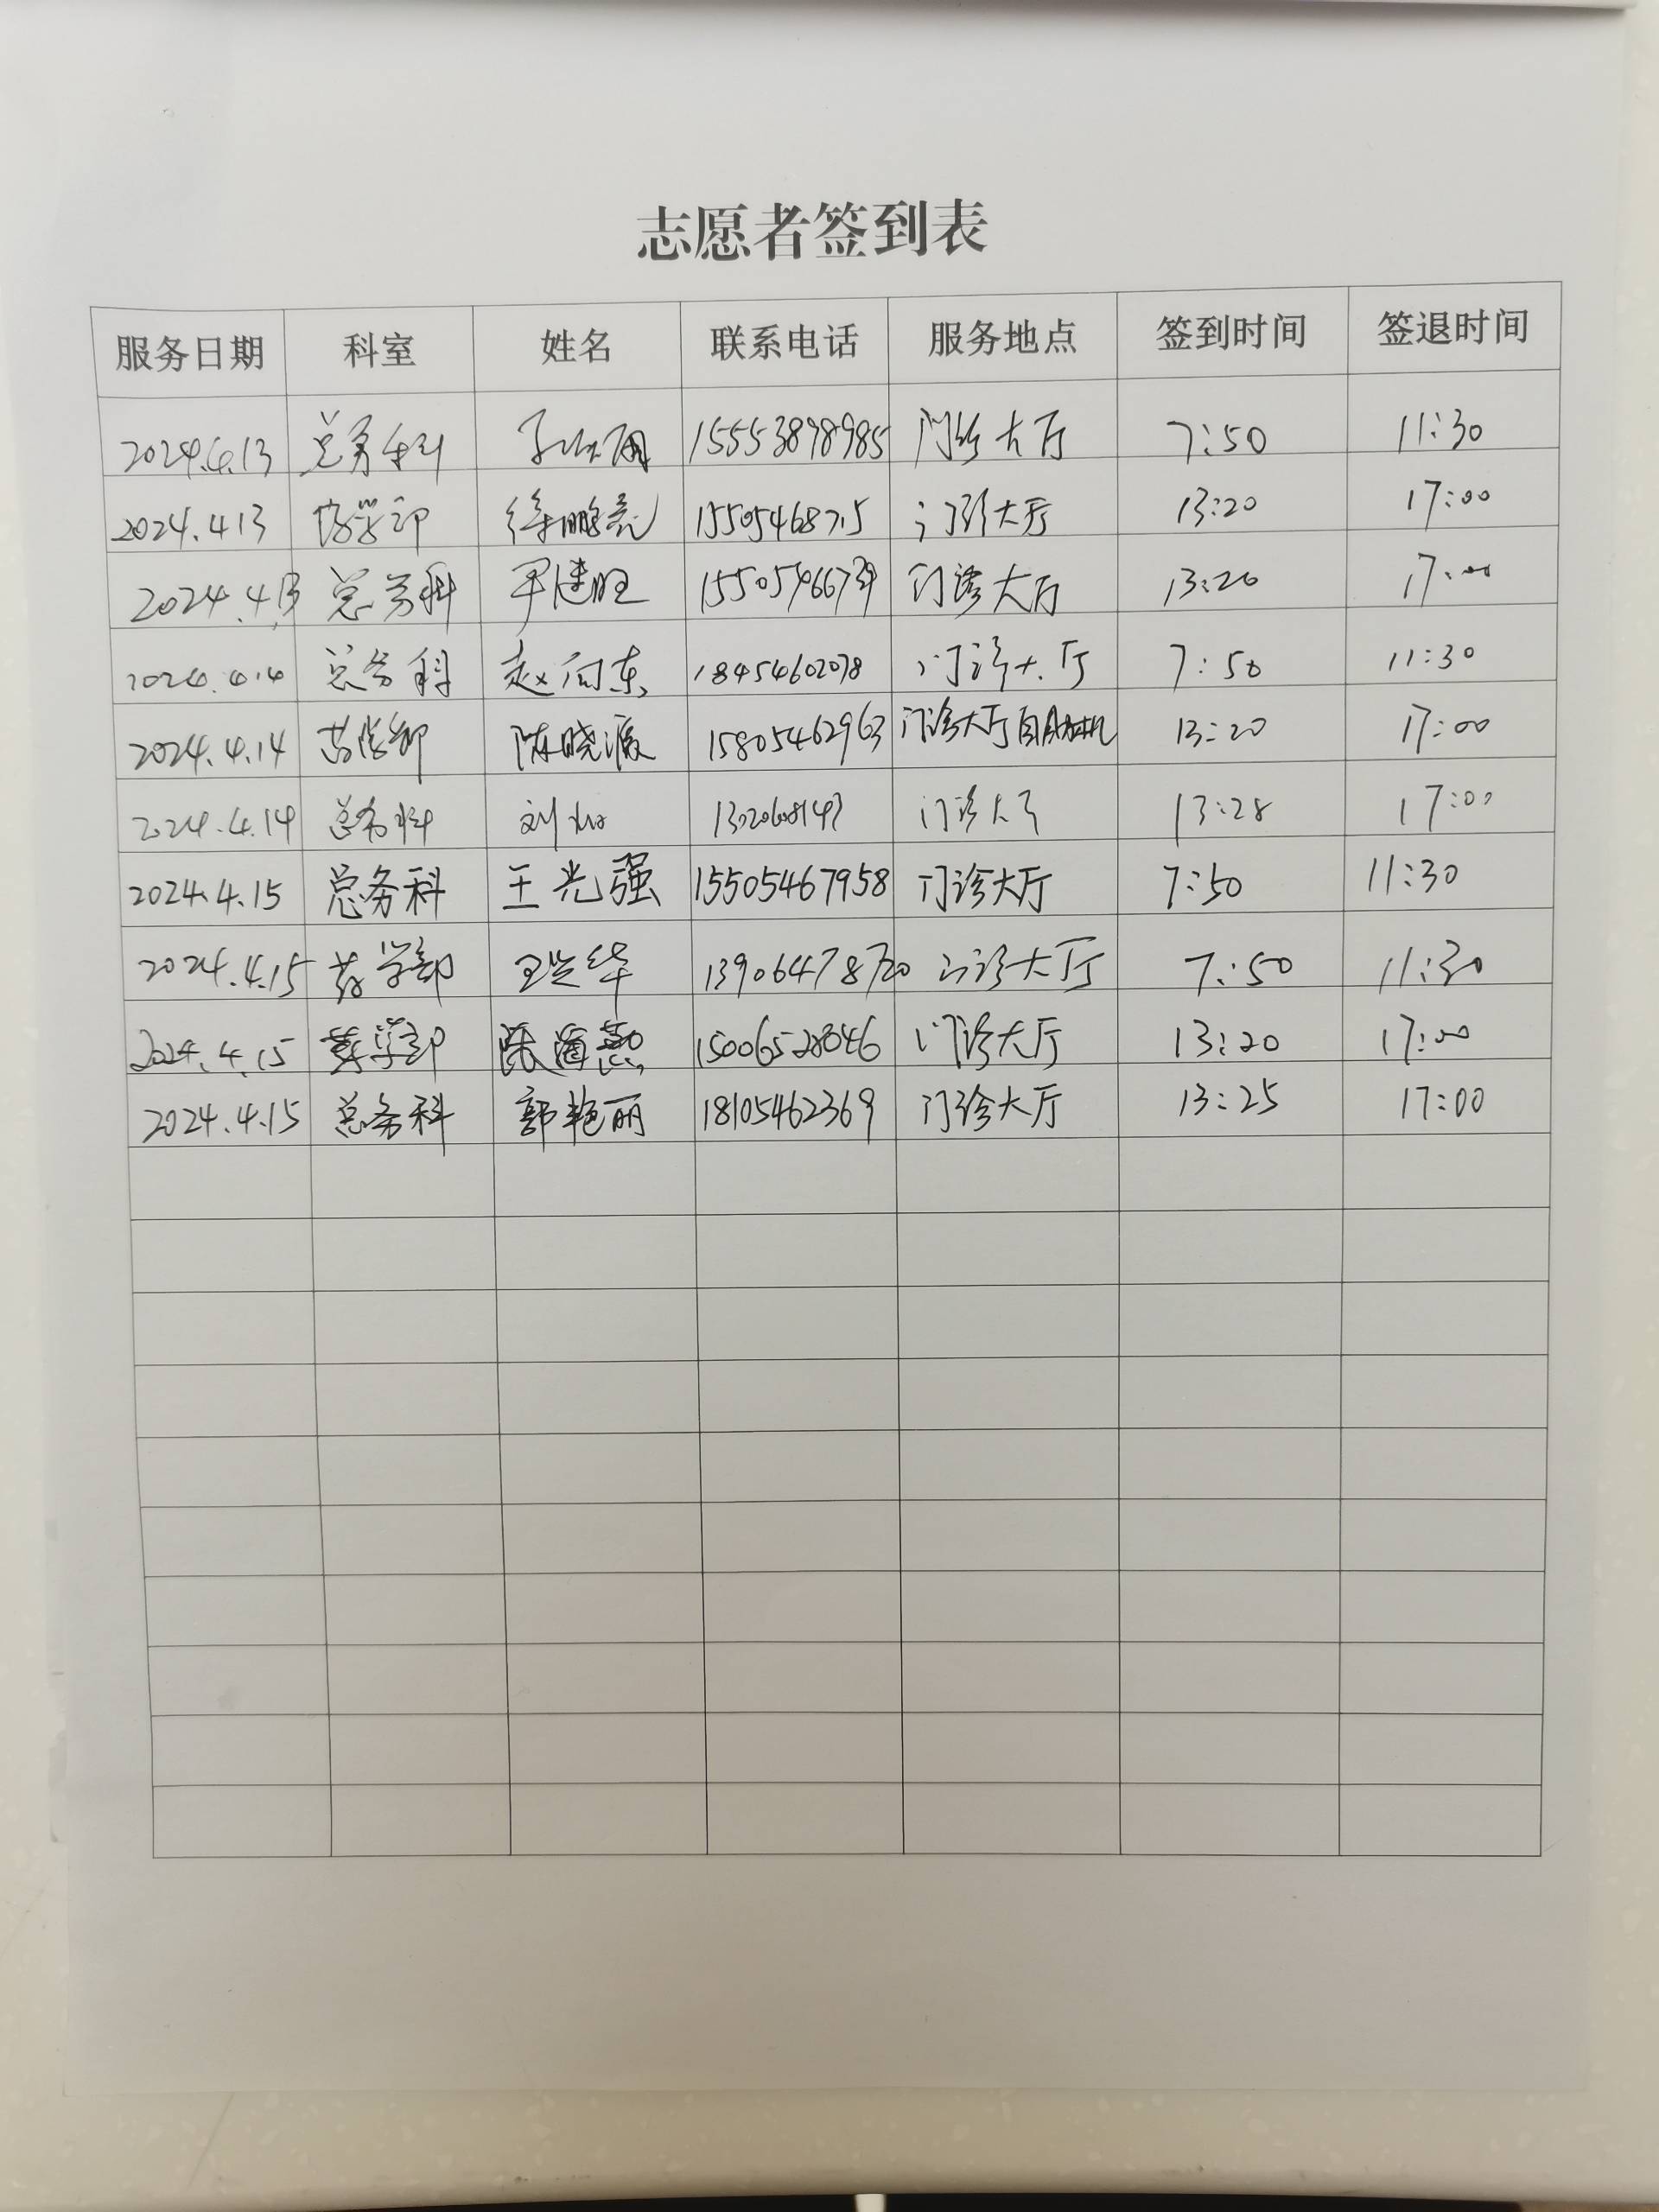 志愿者签到表
服务日期 科室 姓名 联系电话 服务地点 签到时间 签退时间
2024.4.13 总务科 15553898985 门诊大厅 7:50 11:30
2024.4.13 药学部 徐鹏亮 门诊大厅 13:20 17:00
2024.4.13 总务科 尹建旺 门诊大厅 13:20 17:00
2024.4.14 总务科 赵向东 18454602078 门诊大厅 7:50 11:30
2024.4.14 药学部 陈晓 15805462963 门诊大厅自助机 13:20 17:00
2024.4.14 总务科 刘 门诊大厅 13:28 17:00
2024.4.15 总务科 王光强 15505467958 门诊大厅 7:50 11:30
2024.4.15 药学部 王兰华 13906478720 门诊大厅 7:50 11:30
2024.4.15 药学部 15006528046 门诊大厅 13:20 17:00
2024.4.15 总务科 郭艳丽 18105462369 门诊大厅 13:25 17:00